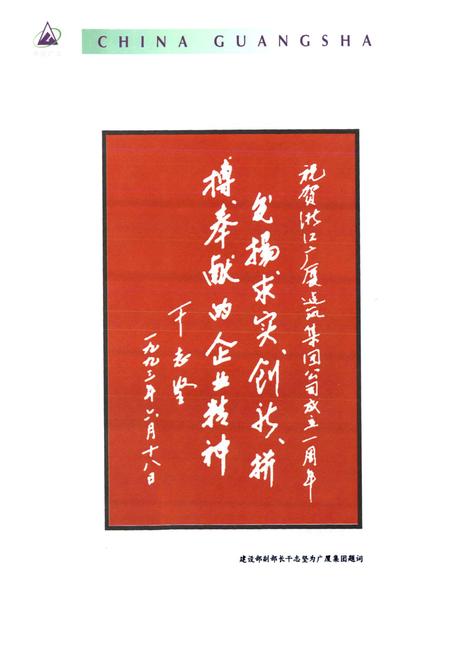 CHINA GUANGSHA
祝贺浙江广厦建筑集团公司成立一周年
发扬求实、创新、拼
搏、奉献的企业精神
干志坚
一九九三年六月十八日
建设部副部长干志坚为广厦集团题词